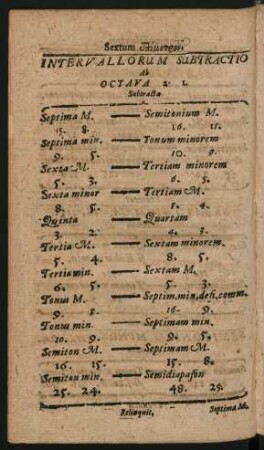 Sextum
INTERVALLORUM SUBTRACTIO
Ab
OCTAVA 2. 1.
Subtracta
Septima M. — Semitonium M.
15. 8. 16. 15.
Septima min. — Tonum minorem
9. 5. 10. 9.
Sexta M. — Tertiam minorem
5. 3. 6. 5.
Sexta minor — Tertiam M.
8. 5. 5. 4.
Quinta — Quartam
3. 2. 4. 3.
Tertia M. — Sextam minorem.
5. 4. 8. 5.
Tertia min. — Sextam M.
6. 5. 5. 3.
Tonus M. — Septim. min. defi. comm.
9. 8. 16. 9.
Tonus min. — Septimam min.
10. 9. 9. 5.
Semiton M. — Septimam M.
16. 15. 15. 8.
Semiton min. — Semidiapason
25. 24. 48. 25.
Relinquit. Septima M.